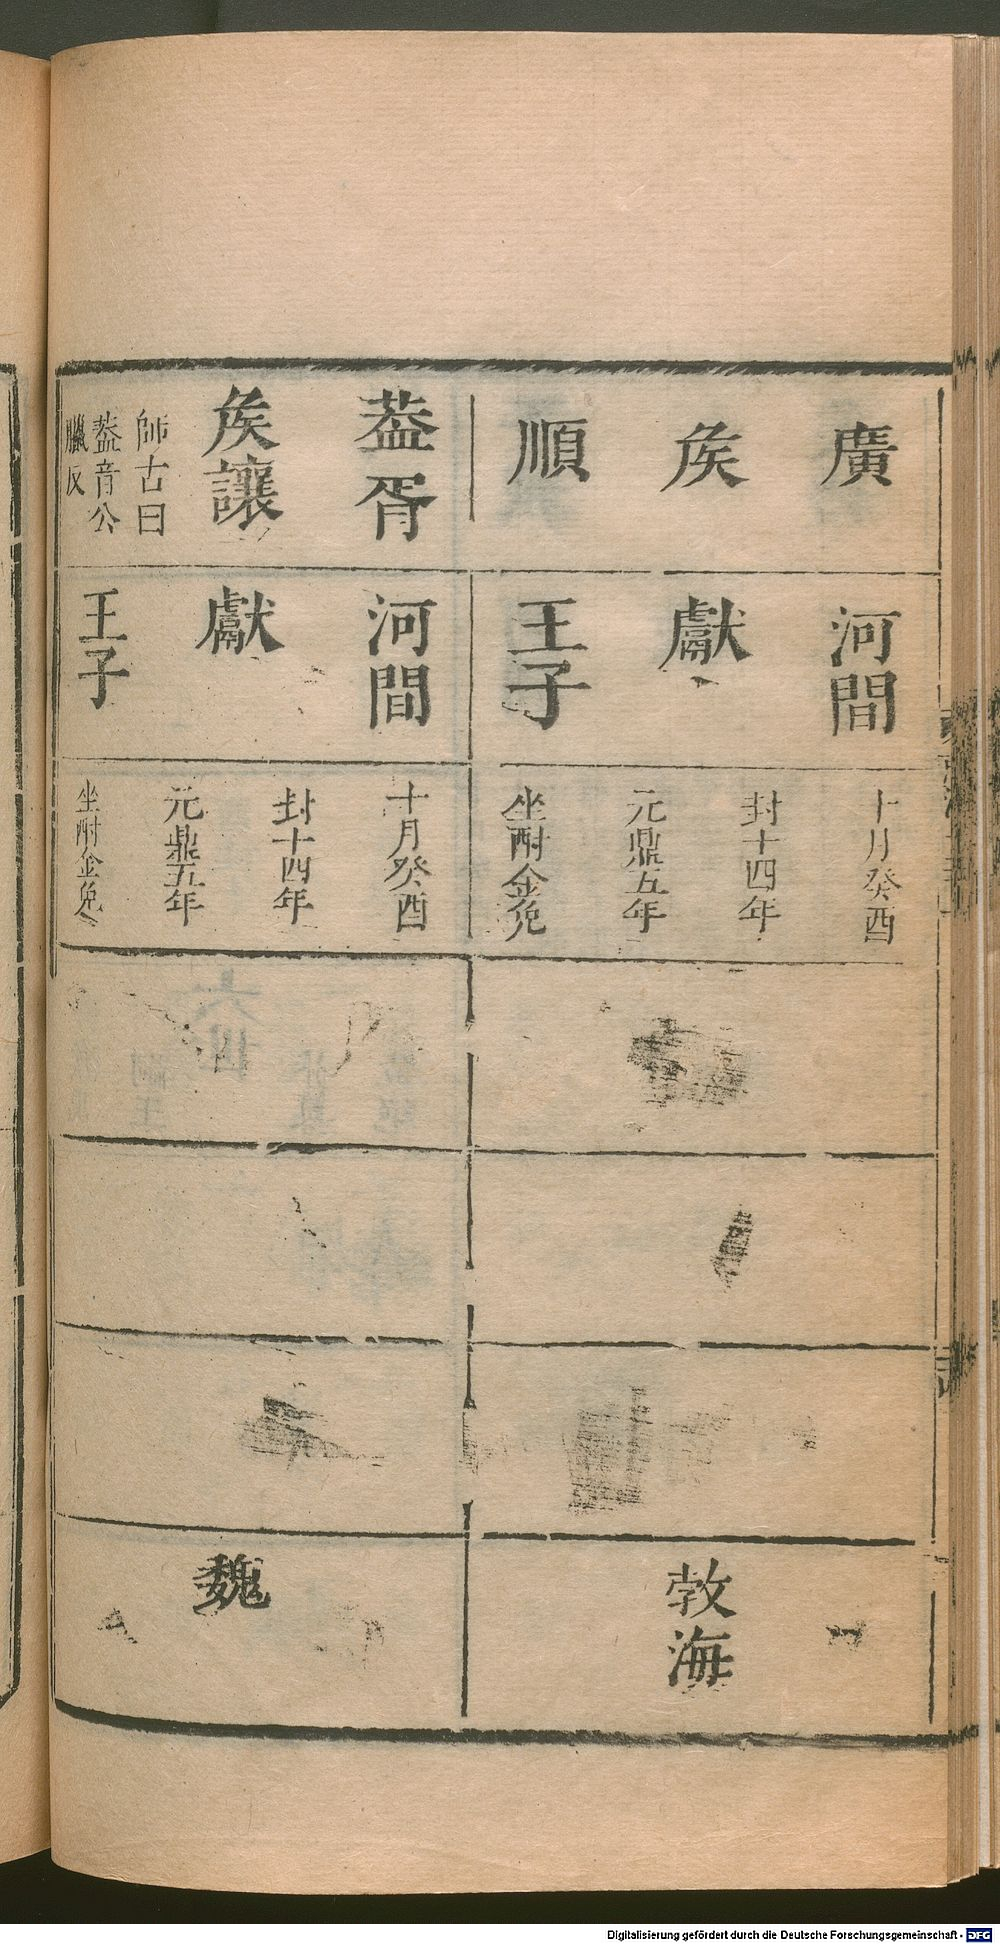 廣
矦
順
河間
獻
王子
十月癸酉
封十四年
元鼎五年
坐酎金免
敦海
葢胥
矦讓
師古曰
葢音公
臘反
河間
獻
王子
十月癸酉
封十四年
元鼎五年
坐酎金免
魏
Digitalisierung gefördert durch die Deutsche Forschungsgemeinschaft - DFG